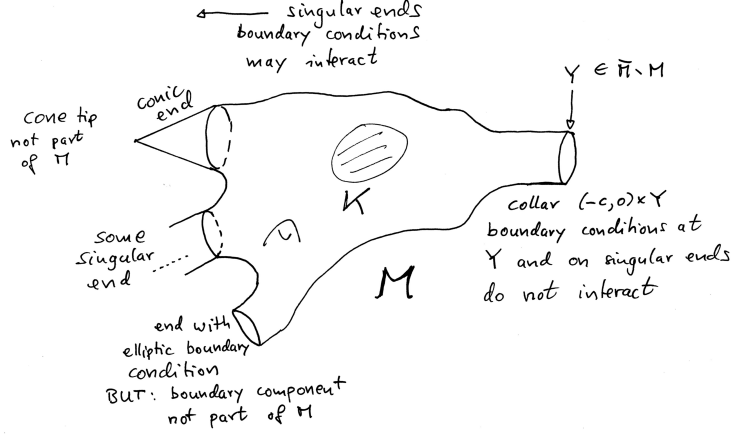 singular ends
boundary conditions
may interact
Y ∈ M̄∖M
conic
end
cone tip
not part
of M
K
collar (-c,0)×Y
boundary conditions at
Y and on singular ends
do not interact
some
singular
end
M
end with
elliptic boundary
condition
BUT: boundary component
not part of M